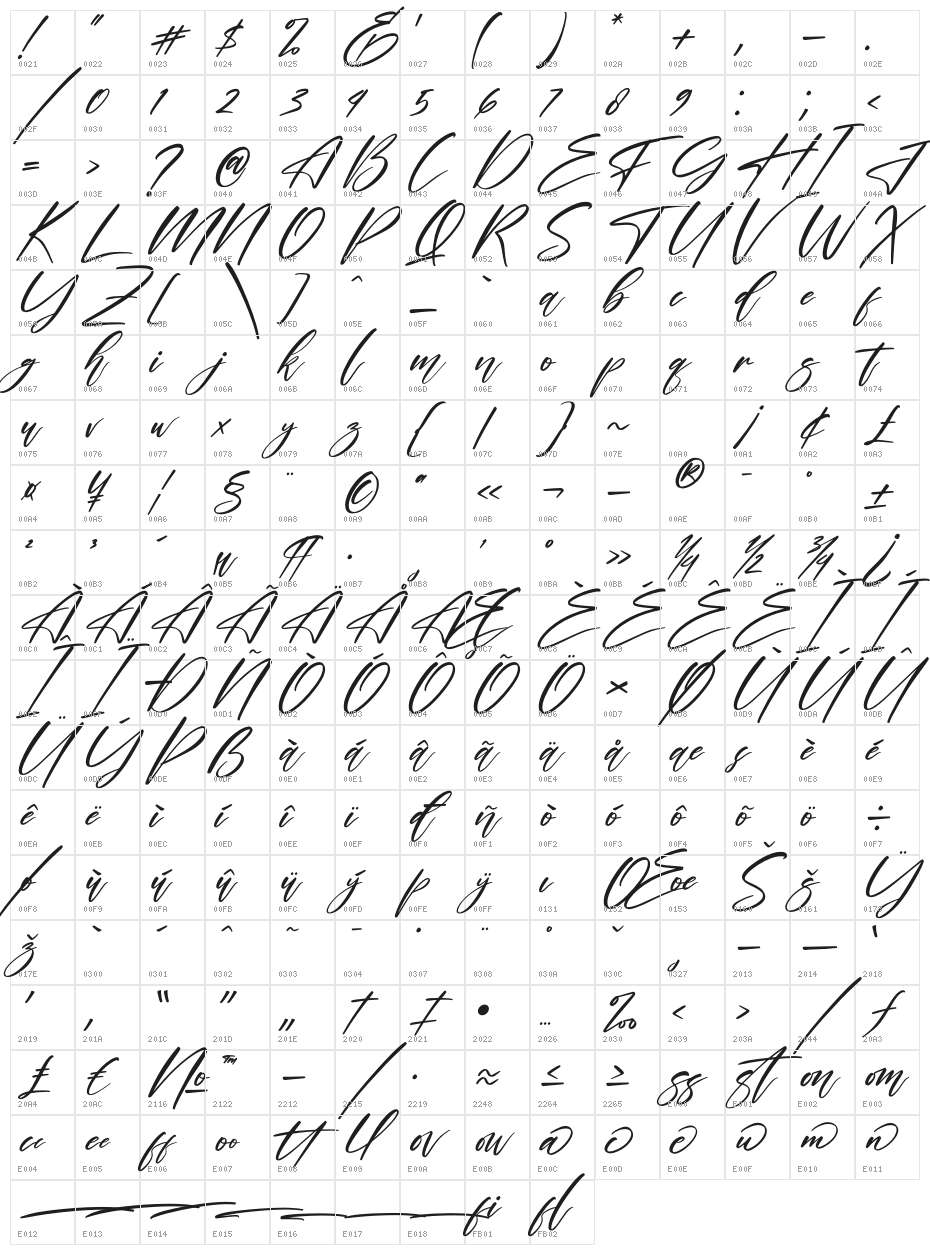 ! " # $ % & ' ( ) * + , - .
0021 0022 0023 0024 0025 0026 0027 0028 0029 002A 002B 002C 002D 002E
/ 0 1 2 3 4 5 6 7 8 9 : ; <
002F 0030 0031 0032 0033 0034 0035 0036 0037 0038 0039 003A 003B 003C
= > ? @ A B C D E F G H I J
003D 003E 003F 0040 0041 0042 0043 0044 0045 0046 0047 0048 0049 004A
K L M N O P Q R S T U V W X
004B 004C 004D 004E 004F 0050 0051 0052 0053 0054 0055 0056 0057 0058
Y Z [ \ ] ^ _ ` a b c d e f
0059 005A 005B 005C 005D 005E 005F 0060 0061 0062 0063 0064 0065 0066
g h i j k l m n o p q r s t
0067 0068 0069 006A 006B 006C 006D 006E 006F 0070 0071 0072 0073 0074
u v w x y z { | } ~ ¡ ¢ £
0075 0076 0077 0078 0079 007A 007B 007C 007D 007E 00A0 00A1 00A2 00A3
¤ ¥ ¦ § ¨ © ª « ¬ - ® ¯ ° ±
00A4 00A5 00A6 00A7 00A8 00A9 00AA 00AB 00AC 00AD 00AE 00AF 00B0 00B1
² ³ ´ µ ¶ · ¸ ¹ º » ¼ ½ ¾ ¿
00B2 00B3 00B4 00B5 00B6 00B7 00B8 00B9 00BA 00BB 00BC 00BD 00BE 00BF
À Á Â Ã Ä Å Æ Ç È É Ê Ë Ì Í
00C0 00C1 00C2 00C3 00C4 00C5 00C6 00C7 00C8 00C9 00CA 00CB 00CC 00CD
Î Ï Ð Ñ Ò Ó Ô Õ Ö × Ø Ù Ú Û
00CE 00CF 00D0 00D1 00D2 00D3 00D4 00D5 00D6 00D7 00D8 00D9 00DA 00DB
Ü Ý Þ ß à á â ã ä å æ ç è é
00DC 00DD 00DE 00DF 00E0 00E1 00E2 00E3 00E4 00E5 00E6 00E7 00E8 00E9
ê ë ì í î ï ð ñ ò ó ô õ ö ÷
00EA 00EB 00EC 00ED 00EE 00EF 00F0 00F1 00F2 00F3 00F4 00F5 00F6 00F7
ø ù ú û ü ý þ ÿ ı Œ œ Š š Ÿ
00F8 00F9 00FA 00FB 00FC 00FD 00FE 00FF 0131 0152 0153 0160 0161 0178
ž ̀ ́ ̂ ̃ ̄ ̇ ̈ ̊ ̌ ̧ – — ‘
017E 0300 0301 0302 0303 0304 0307 0308 030A 030C 0327 2013 2014 2018
’ ‚ “ ” „ † ‡ • … ‰ ‹ › ⁄ ₣
2019 201A 201C 201D 201E 2020 2021 2022 2026 2030 2039 203A 2044 20A3
₤ € № ™ − ∕ ∙ ≈ ≤ ≥ ss st on om
20A4 20AC 2116 2122 2212 2215 2219 2248 2264 2265 E000 E001 E002 E003
cc ee ff oo tt ll ov ow a c e u m n
E004 E005 E006 E007 E008 E009 E00A E00B E00C E00D E00E E00F E010 E011
fi fl
E012 E013 E014 E015 E016 E017 E018 FB01 FB02